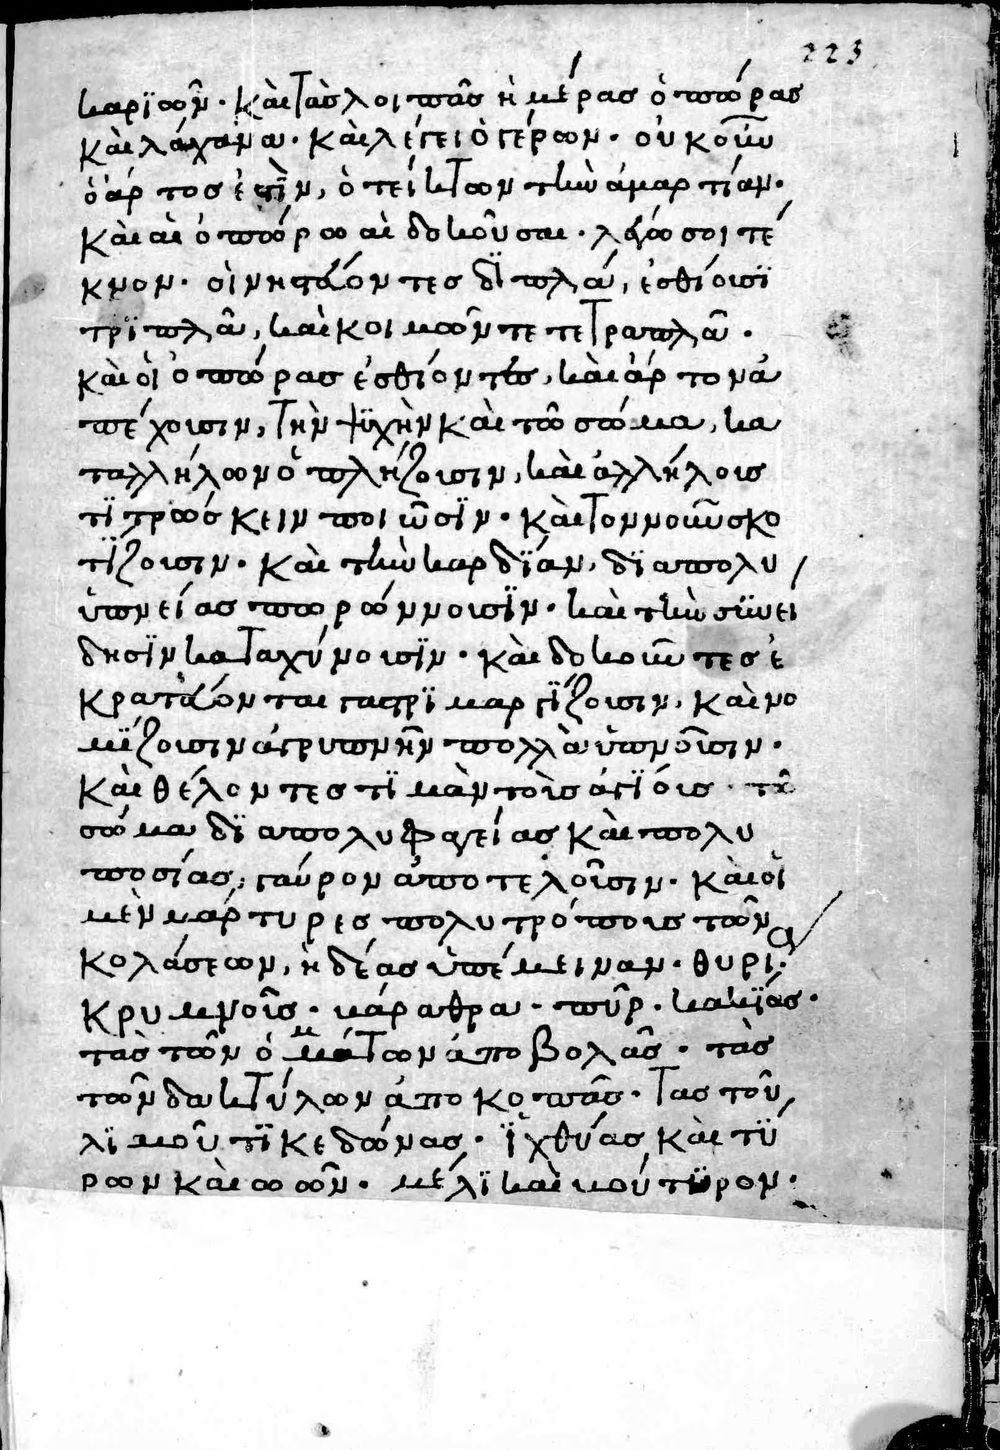 223
καρϊῶν· καὶ τὰς λοιπὰς ἡμέρας ὀπώρας
καὶ λάχανα· καὶ λέγει ὁ γέρων· οὐκοῦν
ὁ ἄρτος ἐστὶν, ὁ τείκτων τὴν ἁμαρτίαν·
καὶ αἱ ὀπώρω αι δοκοῦσαι· λέγω σοι τέ
κνον· οἱ νηστεύοντες διπλᾶ, ἐσθίοισϊ
τρϊπλᾶ, καὶ κοιμοῶντε τετραπλᾶ·
καὶ οἱ ὀπώρας ἐσθίοντες, καὶ ἄρτον ἀ
πέχοισιν, τὴν ψϊχὴν καὶ τὸ σῶμα, κα
ταλλήλων ὁπλήζοισιν, καὶ ἀλλήλοις
τϊτρώσκειν ποιῶσϊν· καὶ τὸν νοῦν σκο
τϊζοισιν· καὶ τὴν καρδϊαν, δϊα πολυ
ὑπνείας πωρώννοισϊν· καὶ τὴν σϋνεί
δησϊν καταχύνοισϊν· καὶ δοκοῦντες ἐ
κρατεύονται γαστρϊμαργϊζοισιν, καὶ νο
μϊζοισιν ἀγρυπνῆν πολλὰ ὑπνοῖσιν·
καὶ θέλοντες τϊμὰν τοὶς ἁγϊοις· τὸ
σῶμα δϊα πολυφαγείας καὶ πολυ
ποσίας, γαύρον ἀποτελοῖσιν· καὶ οἱ
μὲν μάρτυρες πολυτρόποις τῶν
κολάσεων, ἡδέας ὑπέμειναν· θυρία·
κρυμνοῖς· κάραθρα· πῦρ· κακϊάς·
τὰς τῶν ὀμμάτων ἀποβολᾶς· τὰς
τῶν δακτύλων ἀποκοπᾶς· τας τοῦ
λϊμοῦ τϊκεδώνας· ϊχθύας καὶ τϋ
ρων καὶ ωῶν· μέλϊ καὶ κούτϋρον·